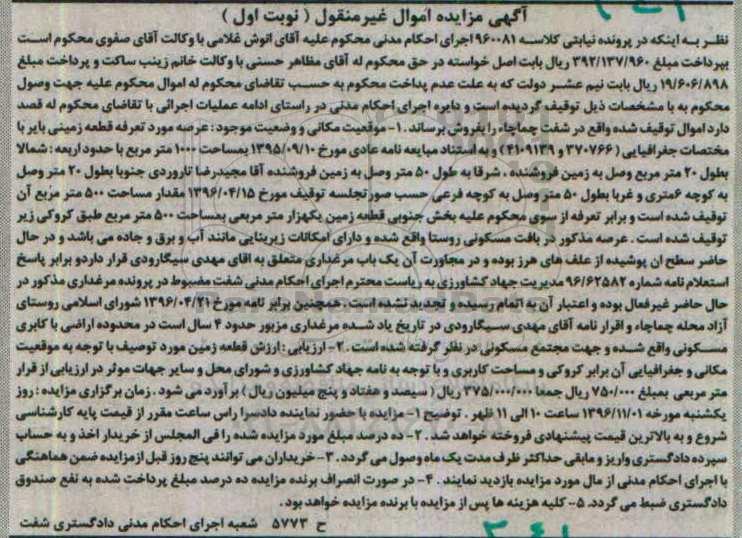 آگهی مزایده اموال غیرمنقول ( نوبت اول )
نظر به اینکه در پرونده نیابتی کلاسه ۹۶۰۰۸۱ اجرای احکام مدنی محکوم علیه آقای انوش غلامی با وکالت آقای صفوی محکوم است
بپرداخت مبلغ ۳۹۲/۱۳۷/۹۶۰ ریال بابت اصل خواسته در حق محکوم له آقای مظاهر حسنی با وکالت خانم زینب ساکت و پرداخت مبلغ
۱۹/۶۰۶/۸۹۸ ریال بابت نیم عشر دولت که به علت عدم پداخت محکوم به حسب تقاضای محکوم له اموال محکوم علیه جهت وصول
محکوم به با مشخصات ذیل توقیف گردیده است و دایره اجرای احکام مدنی در راستای ادامه عملیات اجرائی با تقاضای محکوم له قصد
دارد اموال توقیف شده واقع در شفت چماچاه را بفروش برساند . ۱- موقعیت مکانی و وضعیت موجود : عرصه مورد تعرفه قطعه زمینی بایر با
مختصات جغرافیایی ( ۳۷۰۷۶۶ و ۴۱۰۹۱۳۹ ) و به استناد مبایعه نامه عادی مورخ ۱۳۹۵/۰۹/۱۰ بمساحت ۱۰۰۰ متر مربع با حدود اربعه : شمالا
بطول ۲۰ متر مربع وصل به زمین فروشنده ، شرقا به طول ۵۰ متر وصل به زمین فروشنده آقا مجیدرضا تاروردی جنوبا بطول ۲۰ متر وصل
به کوچه ۶متری و غربا بطول ۵۰ متر وصل به کوچه فرعی حسب صورتجلسه توقیف مورخ ۱۳۹۶/۰۴/۱۵ مقدار مساحت ۵۰۰ متر مربع آن
توقیف شده است و برابر تعرفه از سوی محکوم علیه بخش جنوبی قطعه زمین یکهزار متر مربعی بمساحت ۵۰۰ متر مربع طبق کروکی زیر
توقیف شده است . عرصه مذکور در بافت مسکونی روستا واقع شده و دارای امکانات زیربنایی مانند آب و برق و جاده می باشد و در حال
حاضر سطح ان پوشیده از علف های هرز بوده و در مجاورت آن یک باب مرغداری متعلق به اقای مهدی سیگارودی قرار داردو برابر پاسخ
استعلام نامه شماره ۹۶/۶۲۵۸۲ مدیریت جهاد کشاورزی به ریاست محترم اجرای احکام مدنی شفت مضبوط در پرونده مرغداری مذکور در
حال حاضر غیرفعال بوده و اعتبار آن به اتمام رسیده و تجدید نشده است . همچنین برابر نامه مورخ ۱۳۹۶/۰۴/۲۱ شورای اسلامی روستای
آزاد محله چماچاه و اقرار نامه آقای مهدی سیگارودی در تاریخ یاد شده مرغداری مزبور حدود ۴ سال است در محدوده اراضی با کابری
مسکونی واقع شده و جهت مجتمع مسکونی در نظر گرفته شده است . ۲- ارزیابی : ارزش قطعه زمین مورد توصیف با توجه به موقعیت
مکانی و جغرافیایی آن برابر کروکی و مساحت کاربری و با توجه به نامه جهاد کشاورزی و شورای محل و سایر جهات موثر در ارزیابی از قرار
متر مربعی بمبلغ ۷۵۰/۰۰۰ ریال جمعا ۳۷۵/۰۰۰/۰۰۰ ریال ( سیصد و هفتاد و پنج میلیون ریال ) برآورد می شود . زمان برگزاری مزایده : روز
یکشنبه مورخه ۱۳۹۶/۱۱/۰۱ ساعت ۱۰ الی ۱۱ ظهر . توضیح ۱- مزایده با حضور نماینده دادسرا راس ساعت مقرر از قیمت پایه کارشناسی
شروع و به بالاترین قیمت پیشنهادی فروخته خواهد شد . ۲- ده درصد مبلغ مورد مزایده شده را فی المجلس از خریدار اخذ و به حساب
سپرده دادگستری واریز و مابقی حداکثر ظرف مدت یک ماه وصول می گردد . ۳- خریداران می توانند پنج روز قبل از مزایده ضمن هماهنگی
با اجرای احکام مدنی از مال مورد مزایده بازدید نمایند . ۴- در صورت انصراف برنده مزایده ده درصد مبلغ پرداخت شده به نفع صندوق
دادگستری ضبط می گردد. ۵- کلیه هزینه ها پس از مزایده با برنده مزایده خواهد بود .
ح ۵۷۷۳ شعبه اجرای احکام مدنی دادگستری شفت